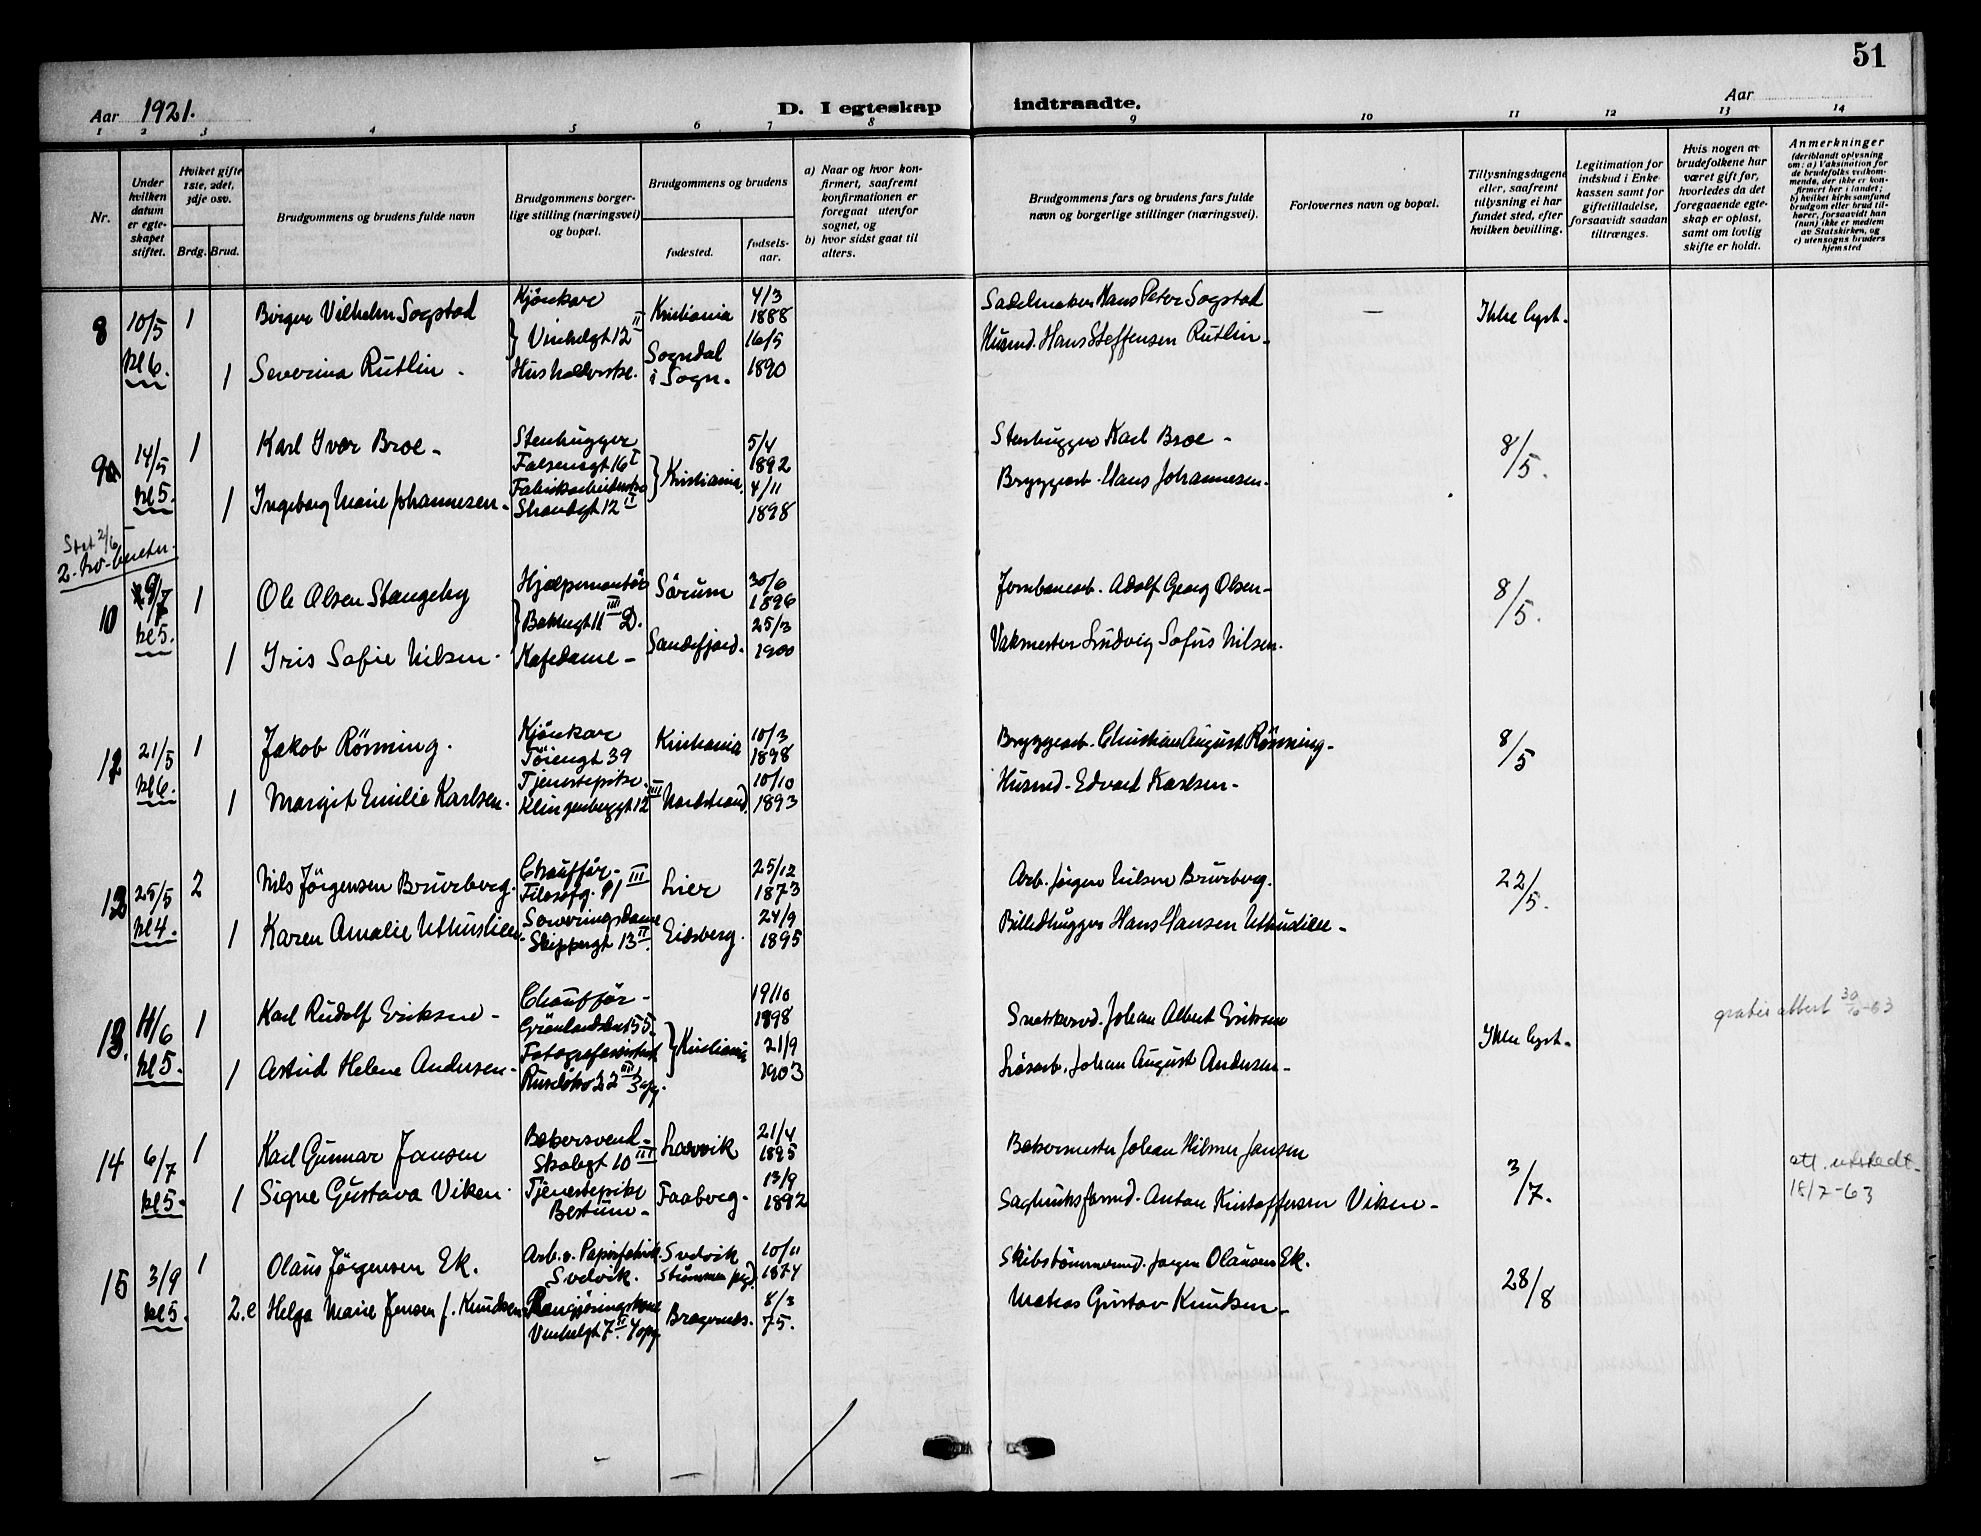 51
Aar 1921.
D. I egteskap indtraadte.
Aar
1 2 3 4 5 6 7 8 9 10 11 12 13 14
Nr.
Under hvilken datum er egteskapet stiftet.
Hvilket gifte 1ste, 2det, 3dje osv.
Brdg. Brud.
Brudgommens og brudens fulde navn
Brudgommens borgerlige stilling (næringsvei) og bopæl.
Brudgommens og brudens
fødested.
fødselsaar.
a) Naar og hvor konfirmert, saafremt konfirmationen er foregaat utenfor sognet, og
b) hvor sidst gaat til alters.
Brudgommens fars og brudens fars fulde navn og borgerlige stillinger (næringsvei).
Forlovernes navn og bopæl.
Tillysningsdagene eller, saafremt tillysning ei har fundet sted, efter hvilken bevilling.
Legitimation for indskud i Enkekassen samt for giftetilladelse, forsaavidt saadan tiltrænges.
Hvis nogen av brudefolkene har været gift før, hvorledes da det foregaaende egteskap er opløst, samt om lovlig skifte er holdt.
Anmerkninger (deriblandt oplysning om: a) Vaksination for de brudefolks vedkommende, der ikke er konfirmert her i landet; b) hvilket kirkesamfund brudgom eller brud tilhører, forsaavidt han (hun) ikke er medlem av Statskirken, og c) utensogns bruders hjemsted
8 10/5 1 Birger Vilhelm Sogstad Kjørekar Kristiania 4/3 1888 Sadelmaker Hans Peter Sogstad — Ikke lyst.
Vinkelgt 12 II
kl 6. 1 Severina Rutlin. Husholderske. Sogndal i Sogn. 16/5 1890 Husmd. Hans Steffensen Rutlin
9 14/5 1 Karl Ivar Broe Stenhugger Falsensgt 16 I Kristiania 5/4 1892 Stenhugger Karl Broe 8/5.
kl 5. 1 Ingeborg Marie Johannesen Fabrikarbeiderske Strandgt 12 II 4/11 1898 Bryggearb. Hans Johannesen
10 9/7 1 Ole Olsen Stangeby Hjælpemontør Sørum 30/6 1896 Jernbanearb. Adolf Georg Olsen 8/5.
Bakkegt 11 III D.
kl 5. 1 Iris Sofie Nilsen Kafedame Sandefjord. 25/3 1900 Vaktmester Ludvig Sofus Nilsen.
21/5 1 Jakob Rønning. Kjørekar Tøiengt 39 Kristiania 10/3 1898 Bryggearb. Christian August Rønning 8/5
kl 6. 1 Margit Emilie Karlsen Tjenestepike. Klingenberggt 12 III Nordstrand. 10/10 1893 Husmd. Edvard Karlsen
25/5 2 Nils Jørgensen Brurberg. Chauffør Filosofg. 91 III Lier 25/12 1873 Arb. Jørgen Nilsen Brurberg. 22/5.
kl 4. 1 Karen Amalie Skippergt 13 II Eidsberg. 24/9 1895 Billedhugger Hans Hansen
13. 11/6 1 Karl Rudolf Eriksen Chauffør Kristiania 19/10 1898 Snekkersvd. Johan Albert Eriksen Ikke lyst. gratis attest 30/6-63
kl 5. 1 Astrid Helene Andersen 21/9 1903 Løsarb. Johan August Andersen
14 6/7 1 Karl Gunnar Jansen Bakersvend Skolegt 10 III Larvik 21/4 1895 Bakermester Johan Hilmer Jansen 3/7. att. utstedt 18/7-63
kl 5. 1 Signe Gustava Viken. Tjenestepike Bestum Faaberg. 13/9 1892 Sagbruksformd. Anton Kristoffersen Viken
15 3/9 1 Olaus Jørgensen Ek. Arb. v. Papirfabrik. Svelvik. Svelvik 10/11 1874 Skibstømmermd. Jørgen Olausen Ek. 28/8
kl 5. 2. e Helga Marie Jensen f. Knudsen Rengjøringskone Vinkelgt 7 II 4 opg. Bragernes. 8/3 75. Matias Gustav Knudsen